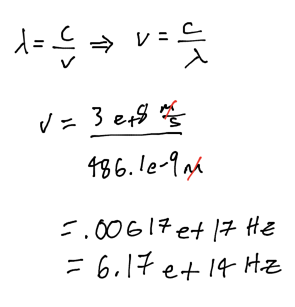 λ = c/ν ⇒ ν = c/λ
ν = 3 e+8 m/s / 486.1e-9 m
= .00617 e+17 Hz
= 6.17 e+14 Hz